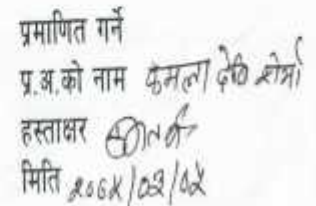 प्रमाणित गर्ने
प्र.अ.को नाम कमला देवि शर्मा
हस्ताक्षर
मिति २०६४/०३/०४